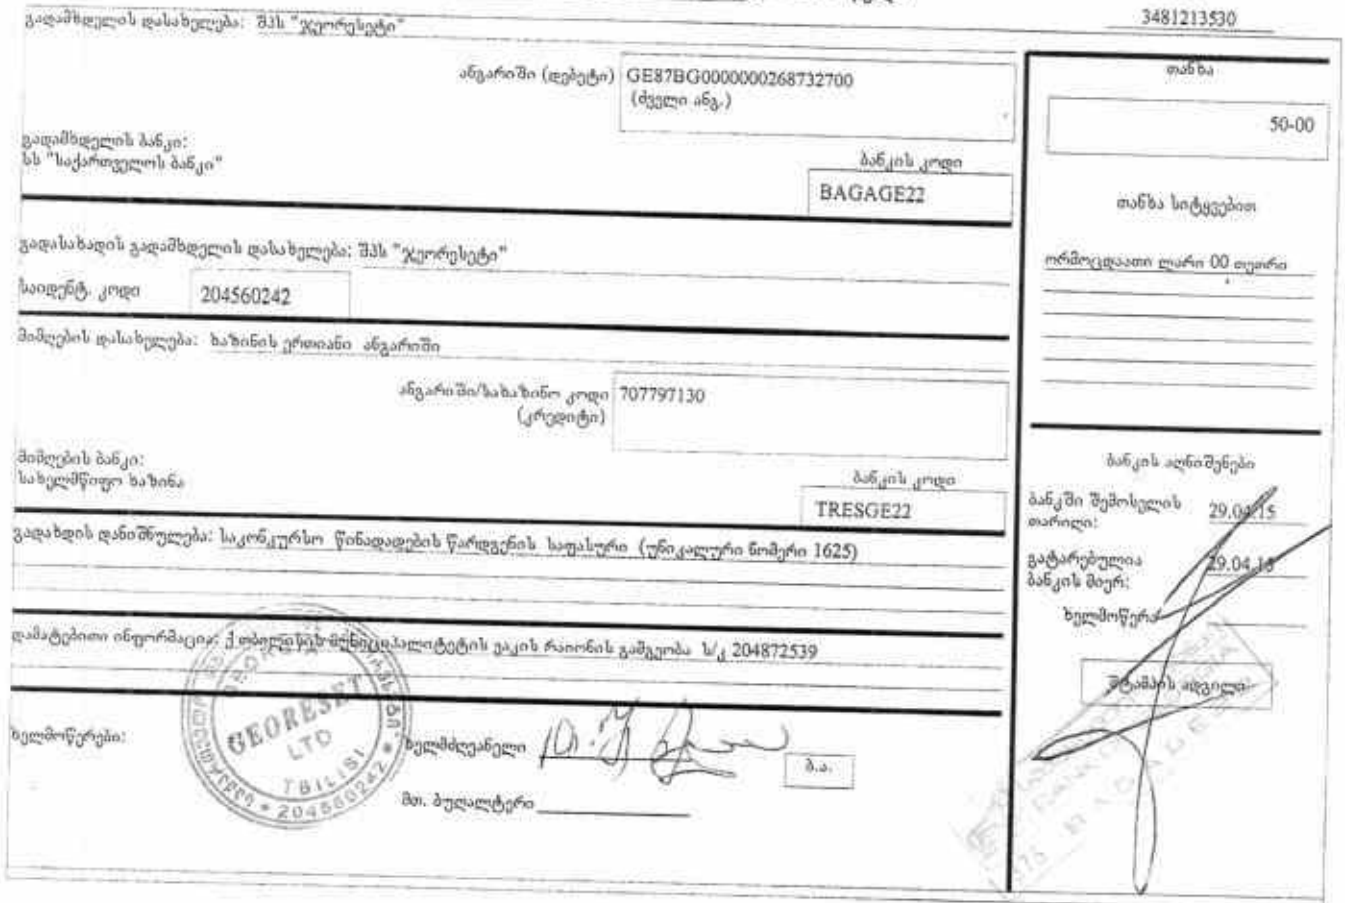 3481213530
გადამხდელის დასახელება: შპს "ჯეორესეტი"
ანგარიში (დებეტი) GE87BG0000000268732700
(ძველი ანგ.)
გადამხდელის ბანკი:
სს "საქართველოს ბანკი"
ბანკის კოდი
BAGAGE22
გადასახადის გადამხდელის დასახელება: შპს "ჯეორესეტი"
საიდენტ. კოდი 204560242
მიმღების დასახელება: ხაზინის ერთიანი ანგარიში
ანგარიში/სახაზინო კოდი 707797130
(კრედიტი)
მიმღების ბანკი:
სახელმწიფო ხაზინა
ბანკის კოდი
TRESGE22
გადახდის დანიშნულება: საკონკურსო წინადადების წარდგენის საფასური (უნიკალური ნომერი 1625)
დამატებითი ინფორმაცია: ქ.თბილისის მუნიციპალიტეტის ვაკის რაიონის გამგეობა ს/კ 204872539
ხელმოწერები:
ხელმძღვანელი
ბ.ა.
მთ. ბუღალტერი
GEORESET
LTD
TBILISI
204560242
თანხა
50-00
თანხა სიტყვებით
ორმოცდაათი ლარი 00 თეთრი
ბანკის აღნიშვნები
ბანკში შემოსვლის
თარიღი: 29.04.15
გატარებულია
ბანკის მიერ: 29.04.15
ხელმოწერა
შტამპის ადგილი